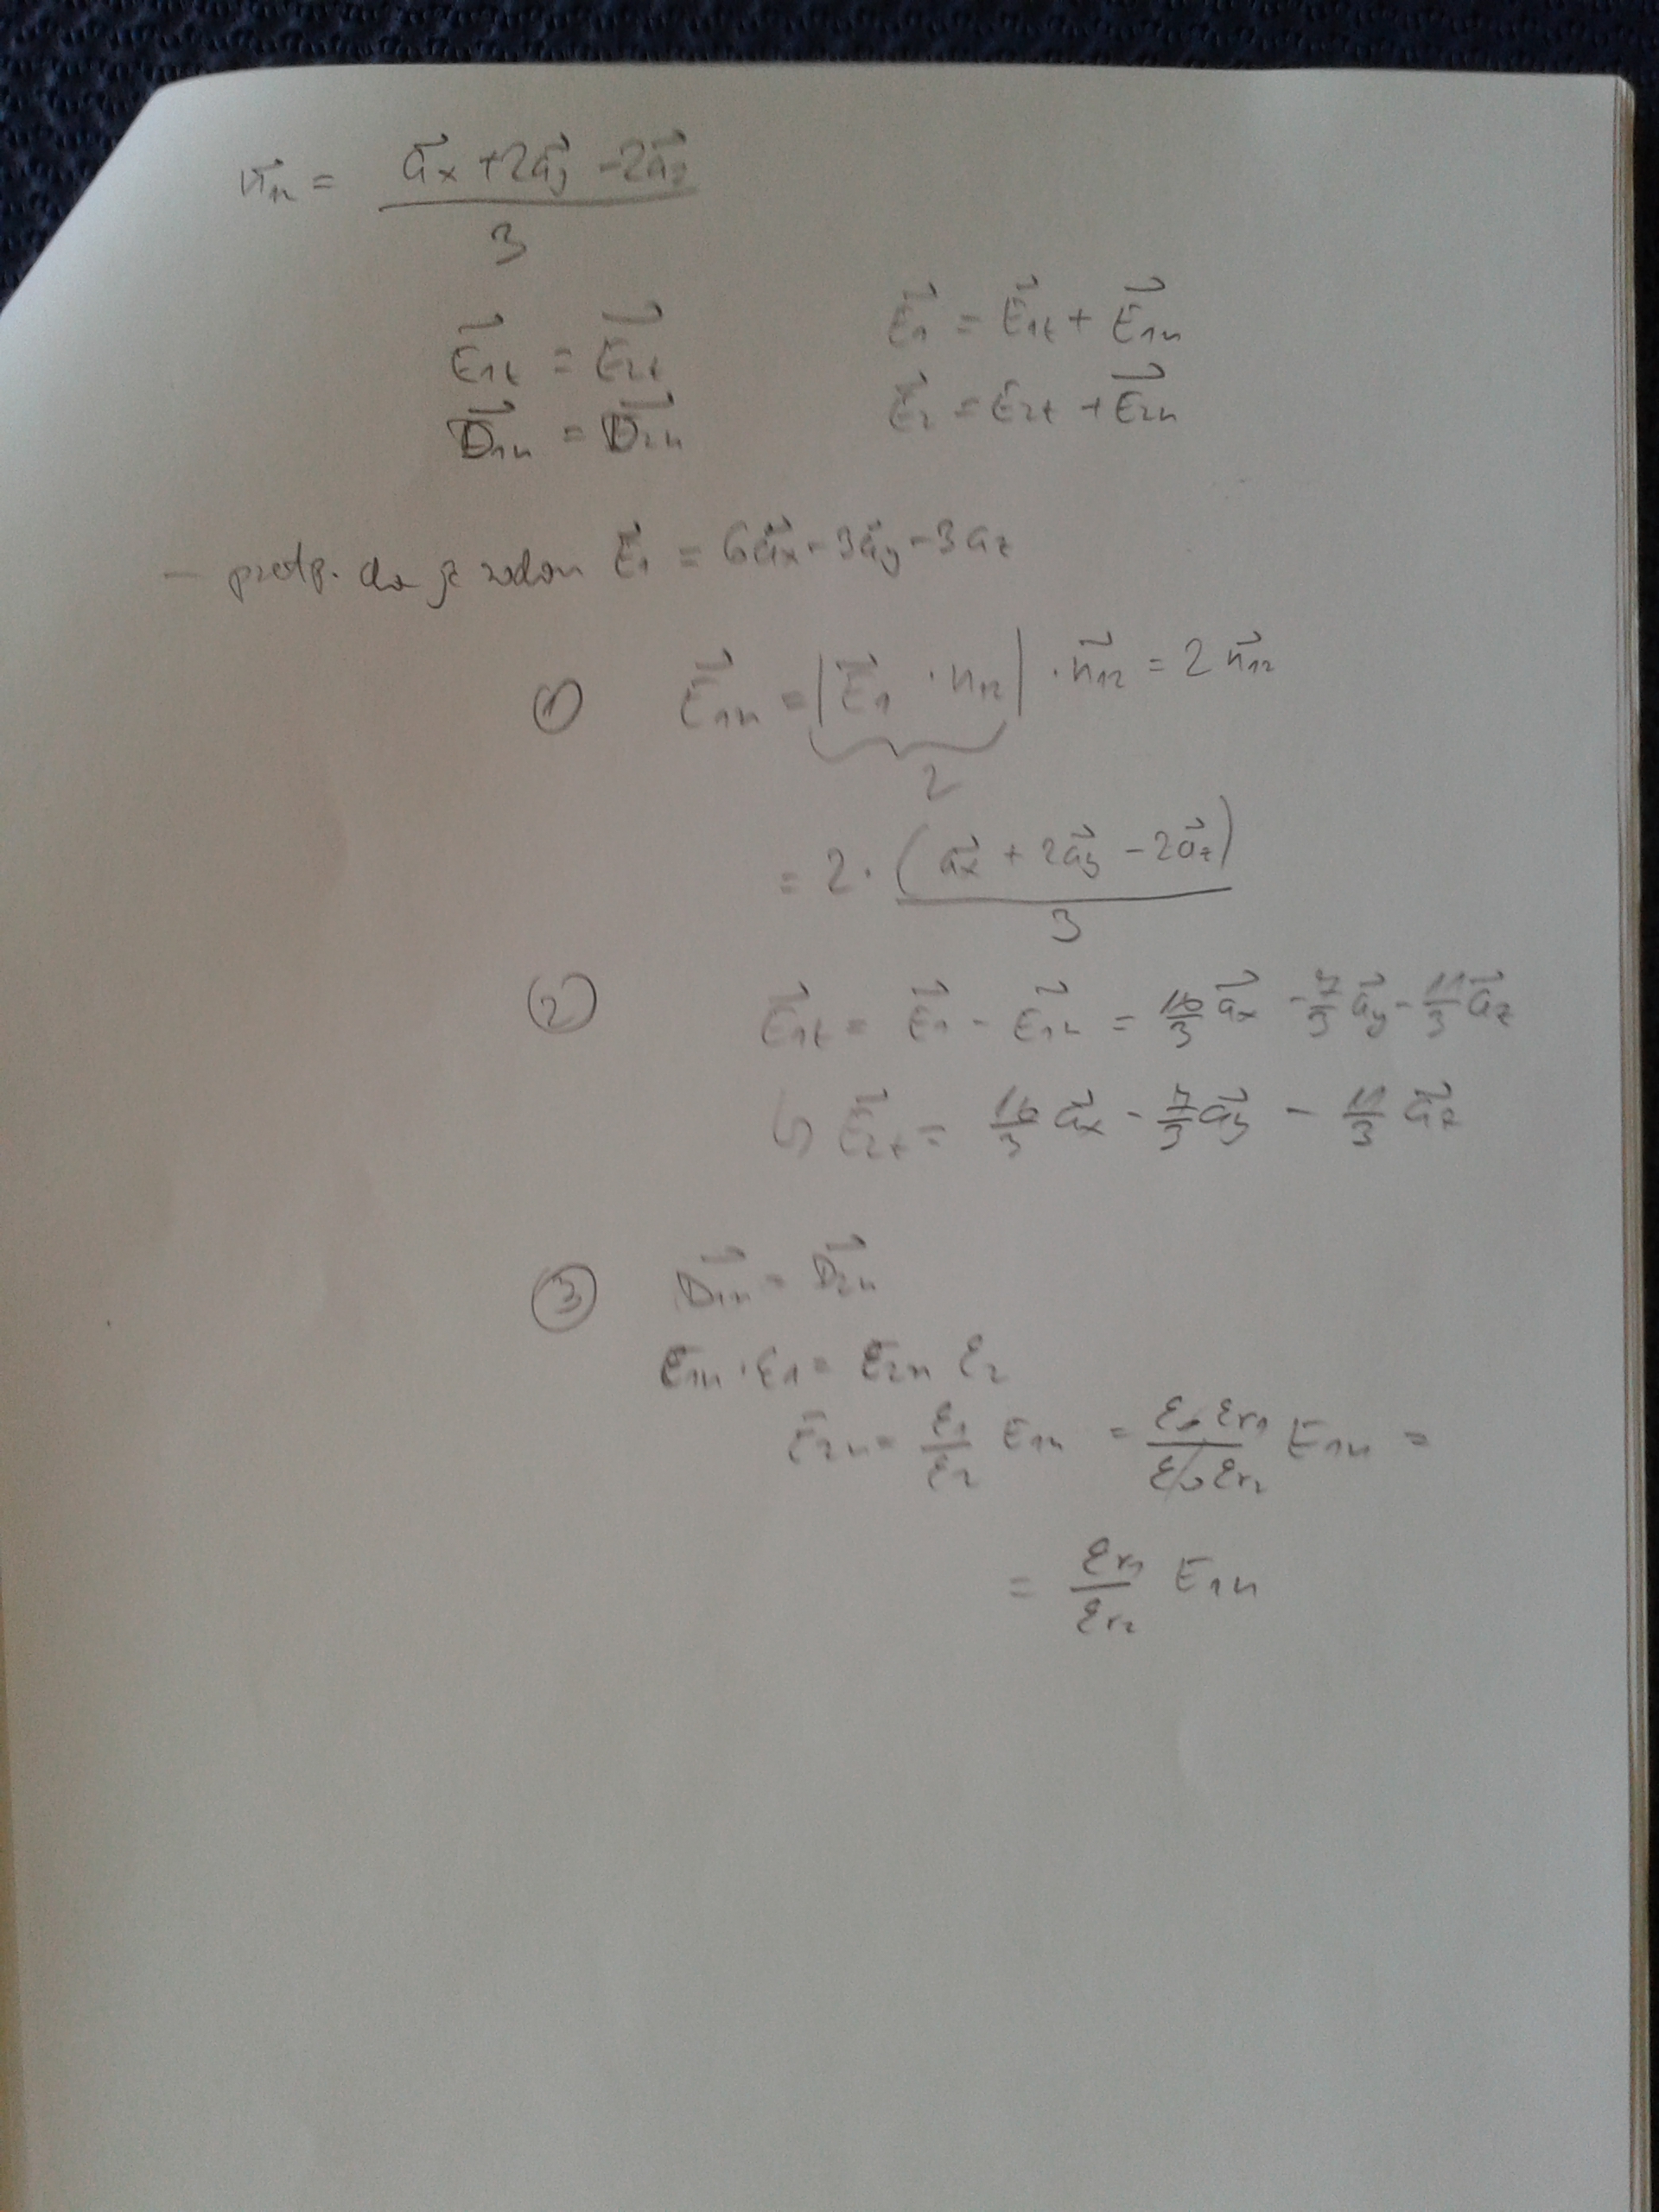 n⃗₁₂ = (a⃗x + 2a⃗y - 2a⃗z) / 3
E⃗1t = E⃗2t
D⃗1n = D⃗2n
E⃗1 = E⃗1t + E⃗1n
E⃗2 = E2t + E⃗2n
- pretp. da je zadan E⃗1 = 6a⃗x - 3a⃗y - 3az
① E⃗1n = |E⃗1 · n12| · n⃗12 = 2 n⃗12
2
= 2 · (a⃗x + 2a⃗y - 2a⃗z) / 3
② E⃗1t = E⃗1 - E⃗1n = 16/3 a⃗x - 7/3 a⃗y - 11/3 a⃗z
↳ E⃗2t = 16/3 a⃗x - 7/3 a⃗y - 11/3 a⃗z
③ D⃗1n = D⃗2n
E1n · ε1 = E2n ε2
E2n = ε1/ε2 E1n = ε0 εr1 / ε0 εr2 E1n =
= εr1/εr2 E1n